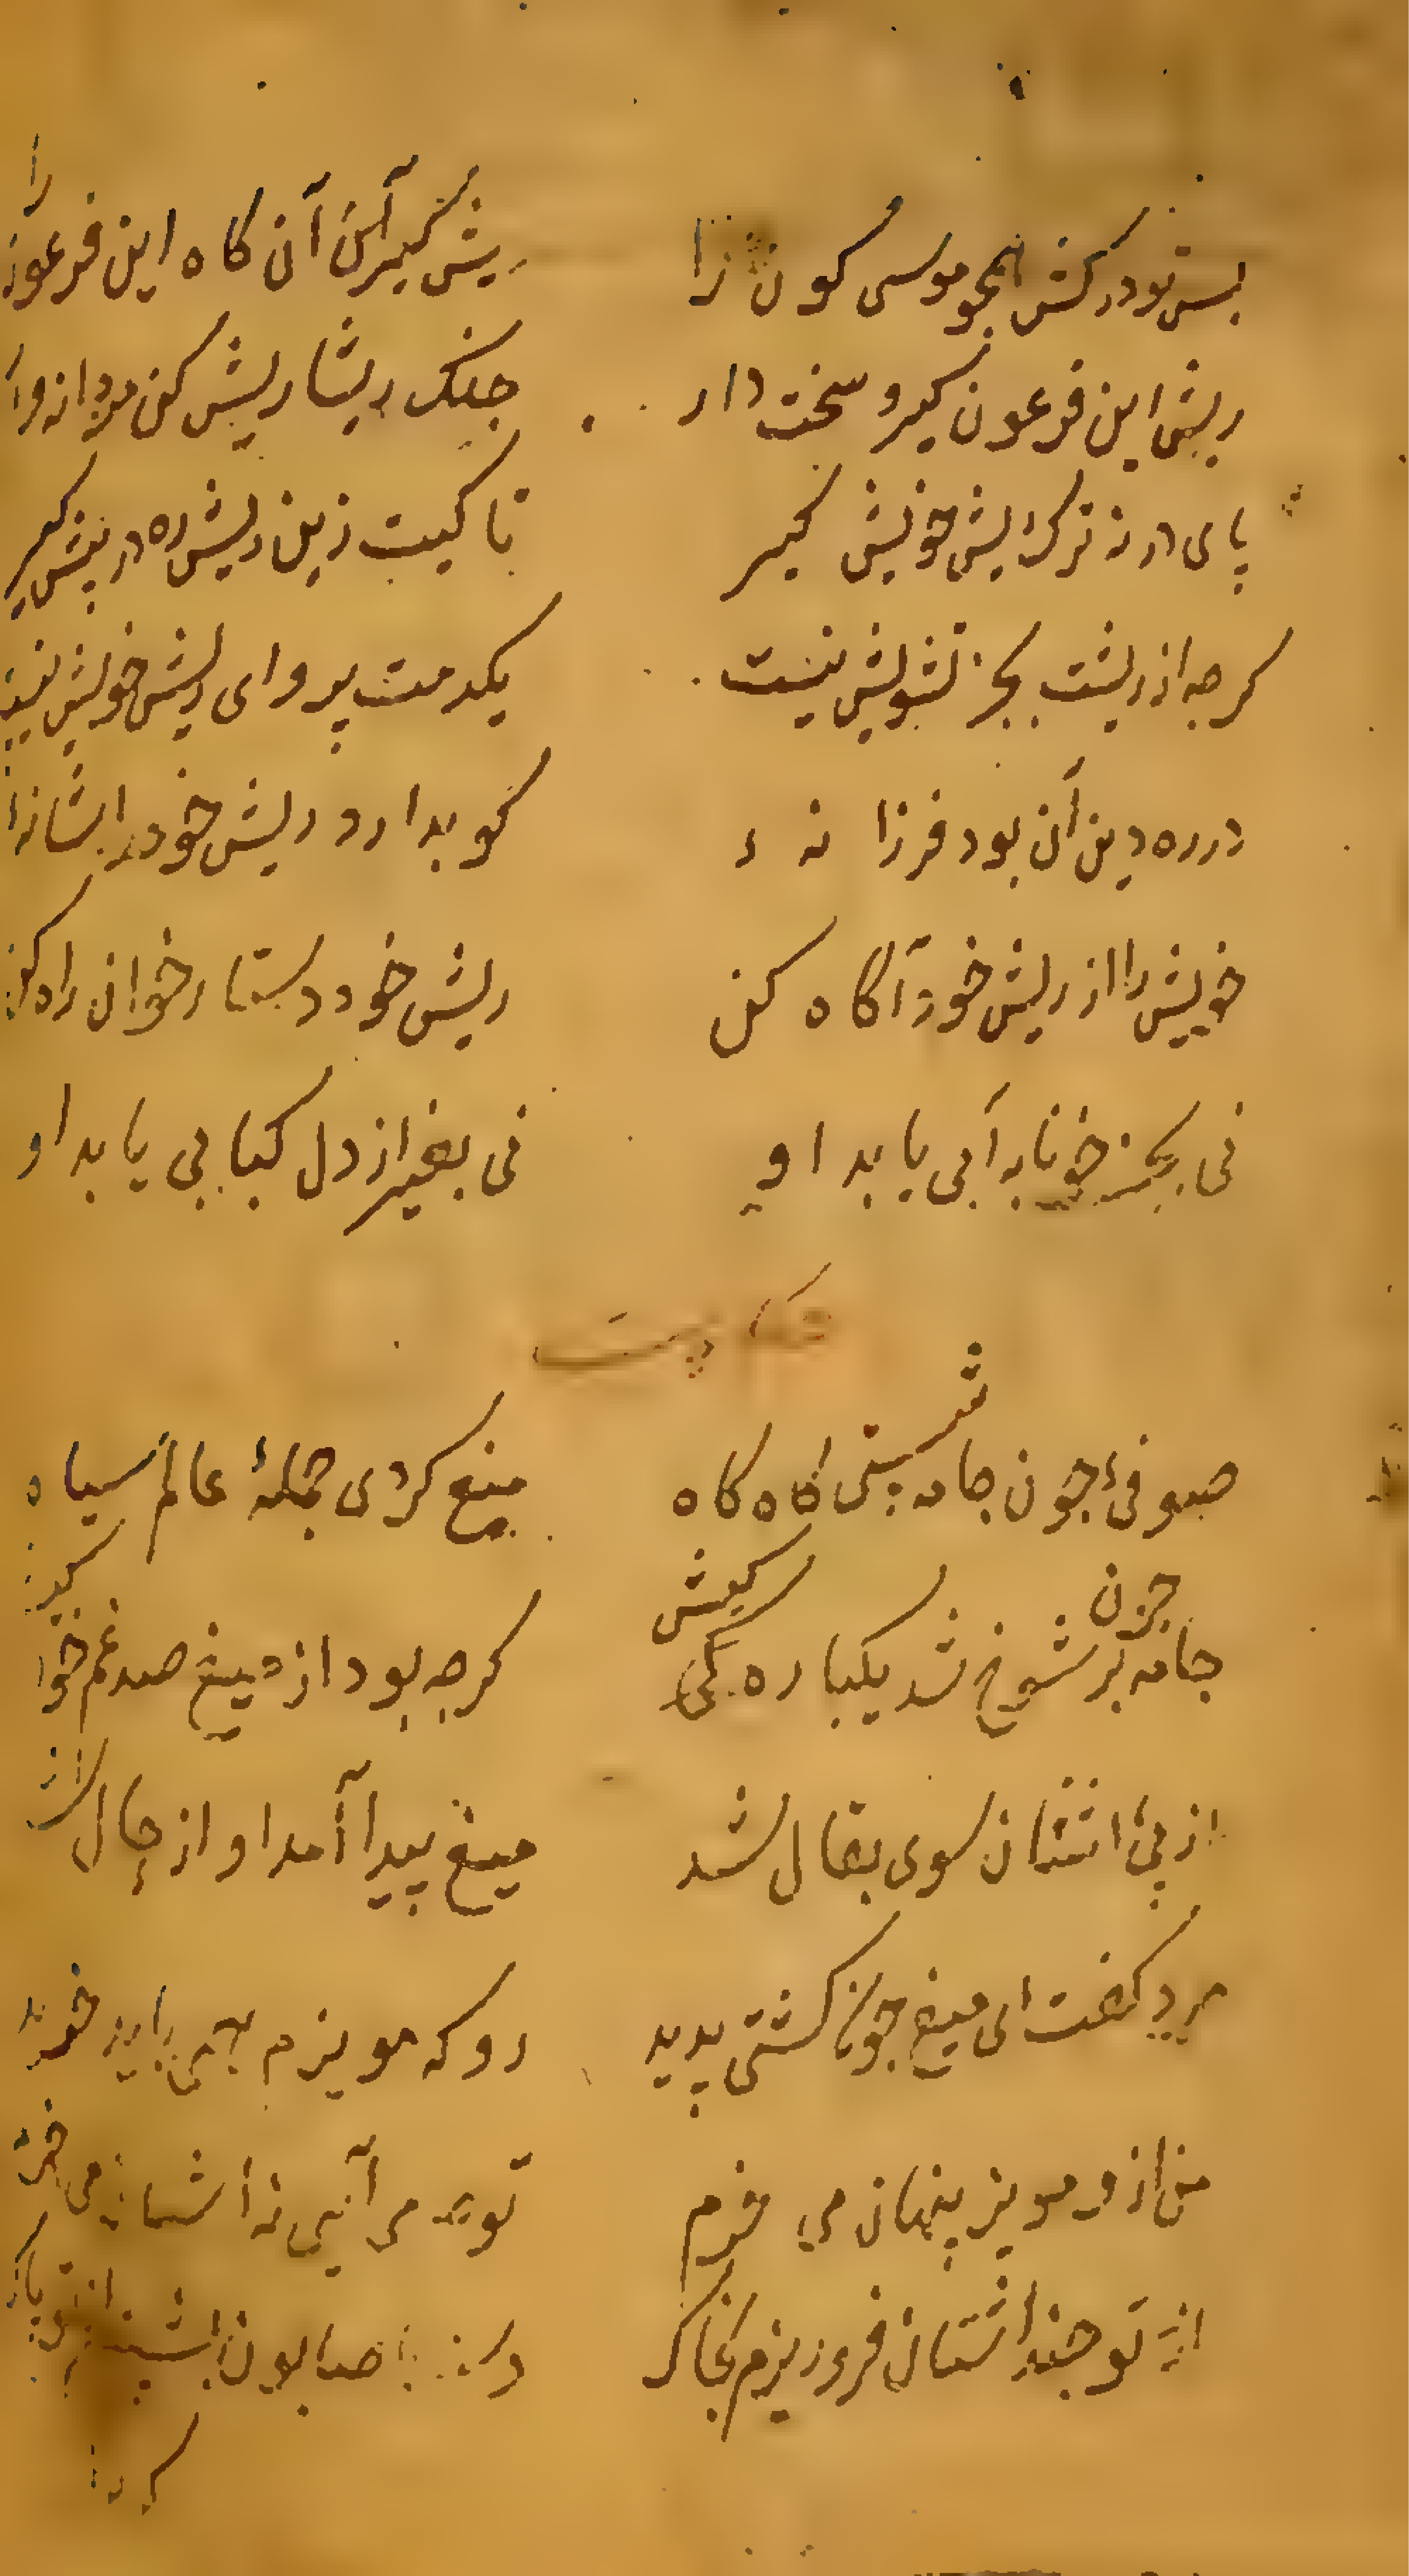 بس تو در کش همچو موسی کون را
ریش گیر آن گاه این فرعون را
ریش این فرعون گیر و سخت دار
جنگ ریشاریش کن مردانه وار
پای در نه ترک ریش خویش گیر
تا کیت زین ریش ره در پیش گیر
کرچه از ریشت بجز تشویش نیست
یکدمت پروای ریش خویش نیست
در ره دین آن بود فرزانه ء
کو بدارد ریش خود را شانه ء
خویش را از ریش خود آکاه کن
ریش خود دستارخوان راه کن
نی بجز خونابه آبی یابد او
نی بغیر از دل کبابی یابد او
حکایت
صوفیٔ چون جامه شستی کاه کاه
میغ کردی جملهٔ عالم سیاه
جامه چون پر شوخ شد یکبارکیش
کرچه بود از میغ صد غم خوارکیش
از پیٔ اشنان سوی بقال شد
میغ پیدا آمد او از حال شد
مرد کفت ای میغ چون کشتی پدید
رو که مویزم همی باید خرید
من ازو مویز پنهان می خرم
تو چه می آئی نه اشنان می خرم
از تو چند اشنان فرو ریزم بخاک
صابون